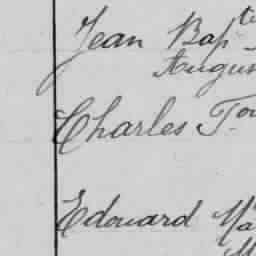 Jean Bapte
Augus
Charles T.
Edouard Ma